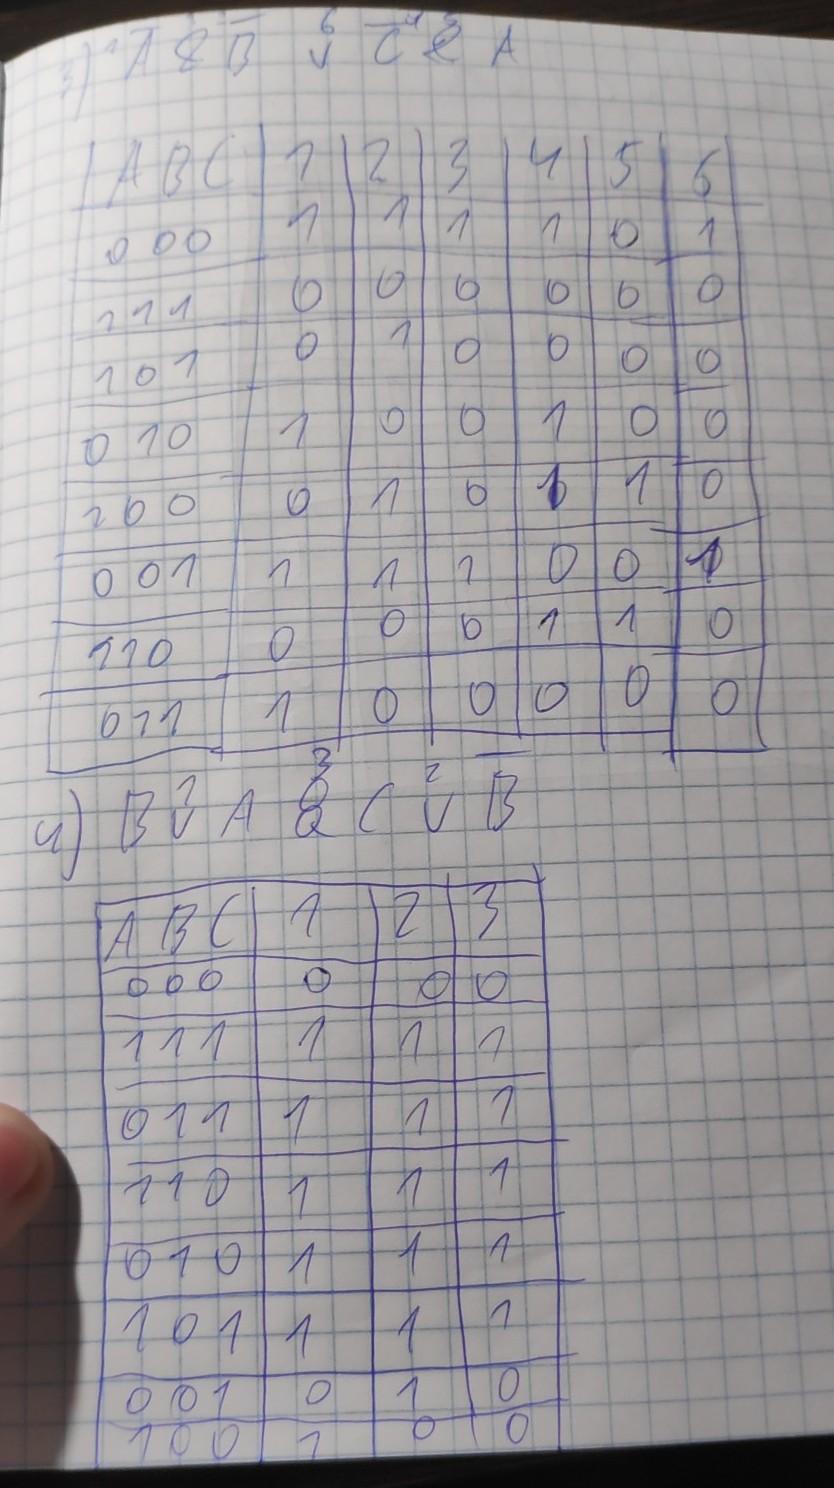 3) Ā & B̄ ∨ C̄ & A
A B C 1 2 3 4 5 6
0 0 0 1 1 1 1 0 1
1 1 1 0 0 0 0 0 0
1 0 1 0 1 0 0 0 0
0 1 0 1 0 0 1 0 0
1 0 0 0 1 0 1 1 0
0 0 1 1 1 1 0 0 1
1 1 0 0 0 0 1 1 0
0 1 1 1 0 0 0 0 0
4) B ∨ A & C ∨ B̄
A B C 1 2 3
0 0 0 0 0 0
1 1 1 1 1 1
0 1 1 1 1 1
1 1 0 1 1 1
0 1 0 1 1 1
1 0 1 1 1 1
0 0 1 0 1 0
1 0 0 1 0 0